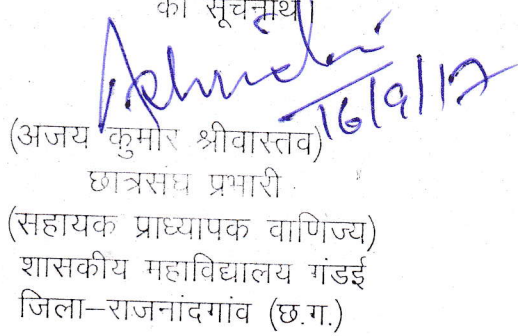 को सूचनार्थ।
16/9/17
(अजय कुमार श्रीवास्तव)
छात्रसंघ प्रभारी
(सहायक प्राध्यापक वाणिज्य)
शासकीय महाविद्यालय गंडई
जिला–राजनांदगांव (छ.ग.)